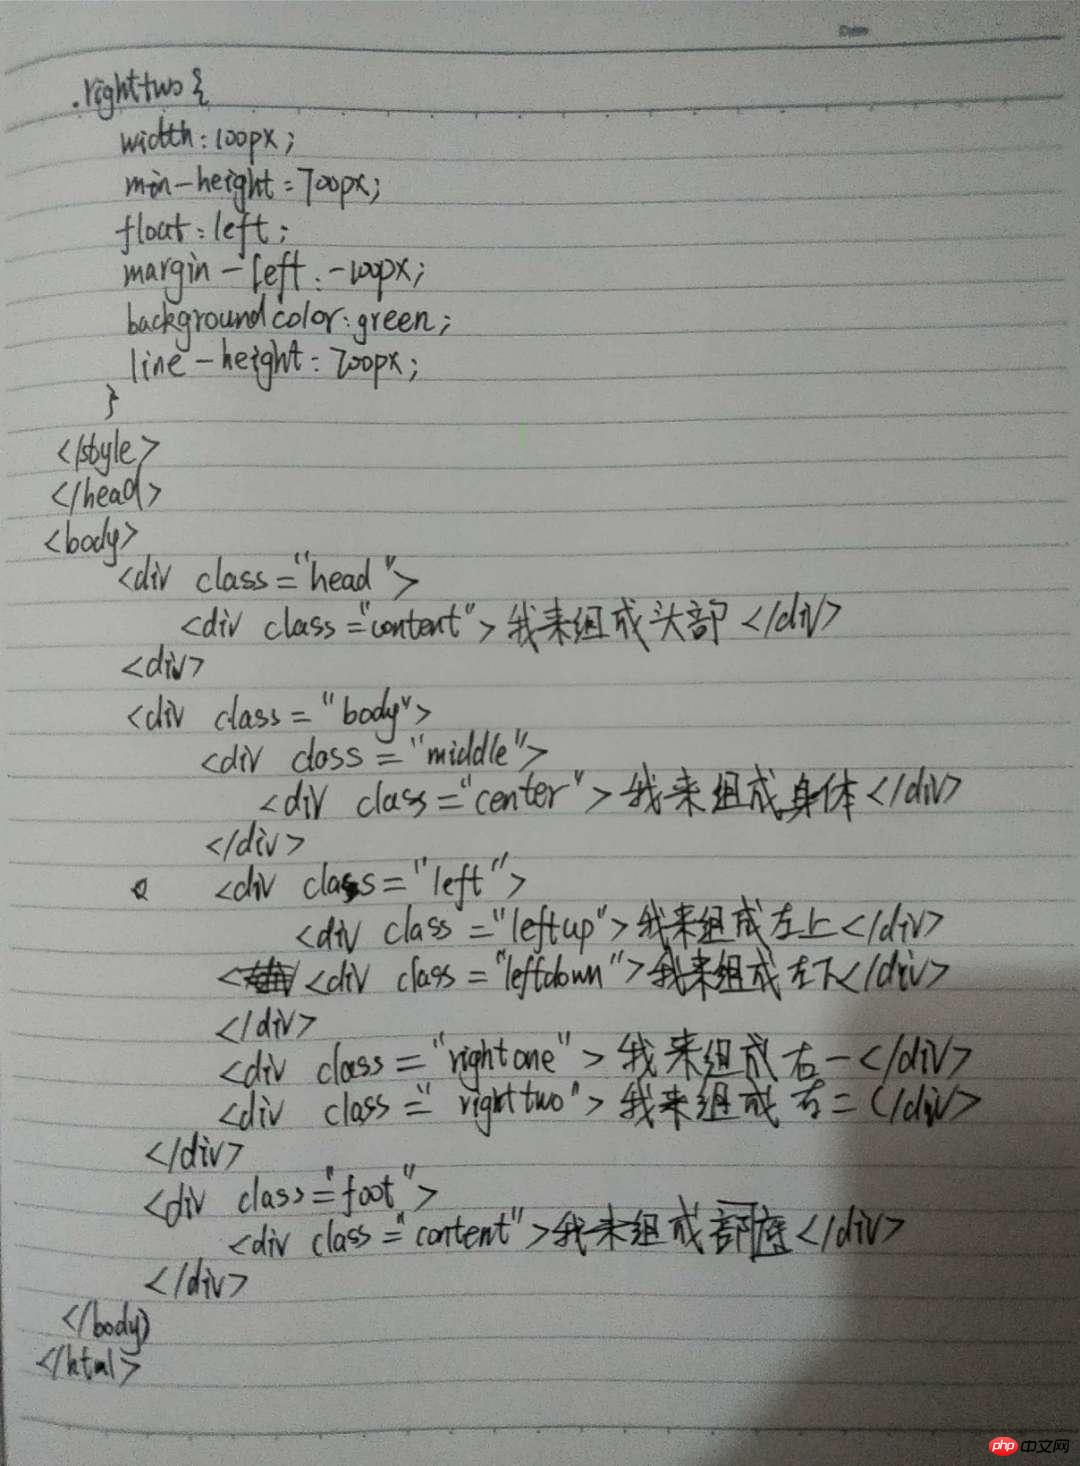 Date
.righttwo {
width:100px;
min-height:700px;
float:left;
margin-left:-100px;
backgroundcolor:green;
line-height:700px;
}
</style>
</head>
<body>
<div class="head">
<div class="content">我来组成头部</div>
<div>
<div class="body">
<div class="middle">
<div class="center">我来组成身体</div>
</div>
<div class="left">
<div class="leftup">我来组成左上</div>
<div class="leftdown">我来组成左下</div>
</div>
<div class="rightone">我来组成右一</div>
<div class="righttwo">我来组成右二</div>
</div>
<div class="foot">
<div class="content">我来组成部底</div>
</div>
</body)
</html>
php 中文网